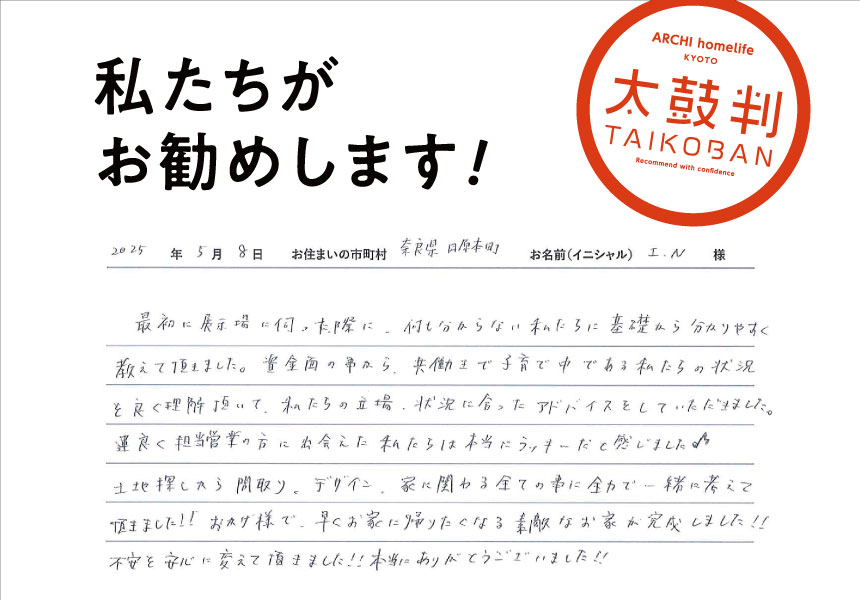 私たちが
お勧めします!
ARCHI homelife
KYOTO
太鼓判
TAIKOBAN
Recommend with confidence
2025 年 5 月 8 日 お住まいの市町村 奈良県 田原本町 お名前(イニシャル) I.N 様
最初に展示場に伺った際に、何も分からない私たちに基礎から分かりやすく
教えて頂きました。資金面の事から、共働きで子育て中である私たちの状況
を良く理解頂いて、私たちの立場、状況に合ったアドバイスをしていただきました。
運良く担当営業の方に出会えた私たちは本当にラッキーだと感じました♪
土地探しから間取り。デザイン、家に関わる全ての事に全力で一緒に考えて
頂きました!!おかげ様で、早くお家に帰りたくなる素敵なお家が完成しました!!
不安を安心に変えて頂きました!!本当にありがとうございました!!